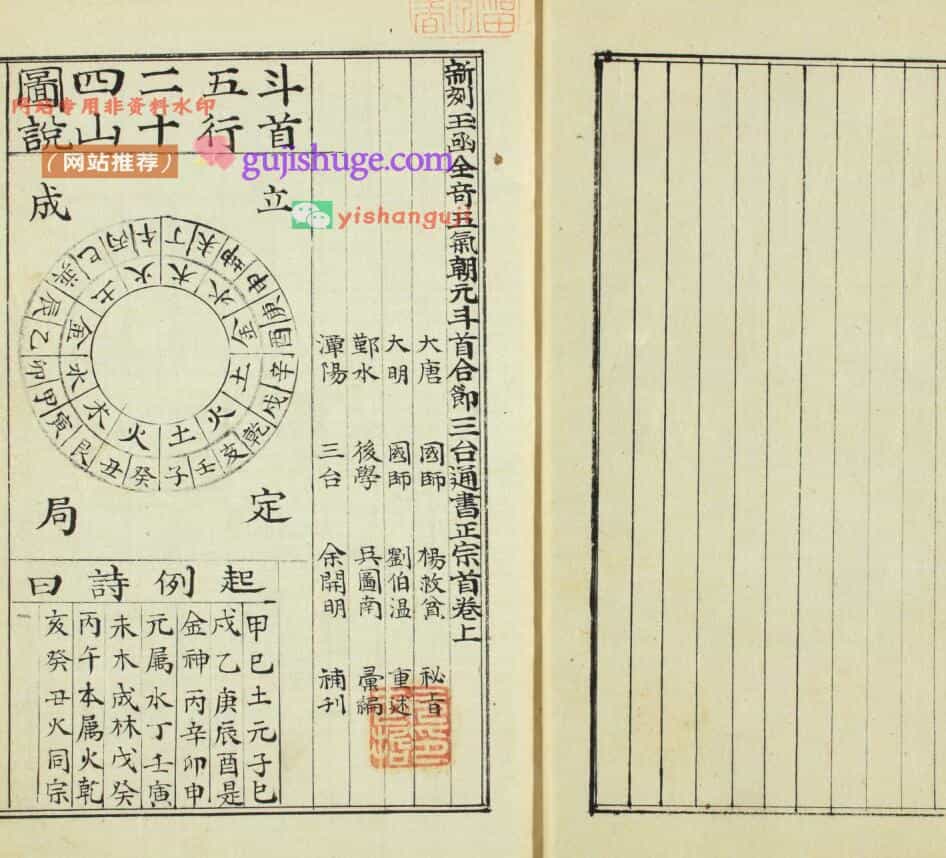 新刻玉函全奇五氣朝元斗首合節三台通書正宗首卷上
大唐 國師 楊救貧 秘旨
大明 國師 劉伯温 重述
鄞水 後學 吳圖南 彙編
潭陽 三台 余開明 補刊
斗首五行二十四山圖說
立成定局
子癸丑艮寅甲卯乙辰巽巳丙午丁未坤申庚酉辛戌乾亥壬
土火木水金土火木水金土火
起例詩曰
甲巳土元子巳
戌乙庚辰酉是
金神丙辛卯申
元属水丁壬寅
未木成林戊癸
丙午本属火乾
亥癸丑火同宗
网站专用非资料水印
（网站推荐）
gujishuge.com
yishanguji